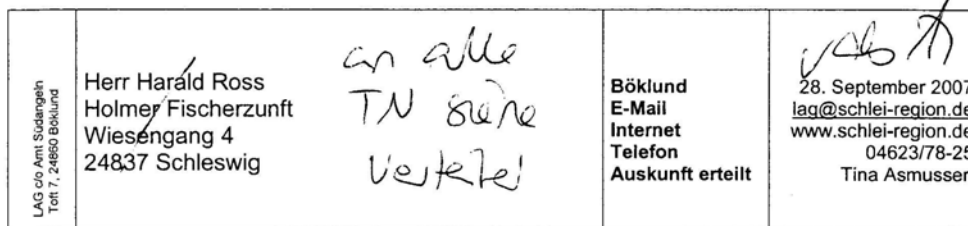 LAG c/o Amt Südangeln
Toft 7, 24860 Böklund
Herr Harald Ross
Holmer Fischerzunft
Wiesengang 4
24837 Schleswig
an alle
TN siehe
Verteiler
Böklund
E-Mail
Internet
Telefon
Auskunft erteilt
28. September 2007
lag@schlei-region.de
www.schlei-region.de
04623/78-25
Tina Asmussen